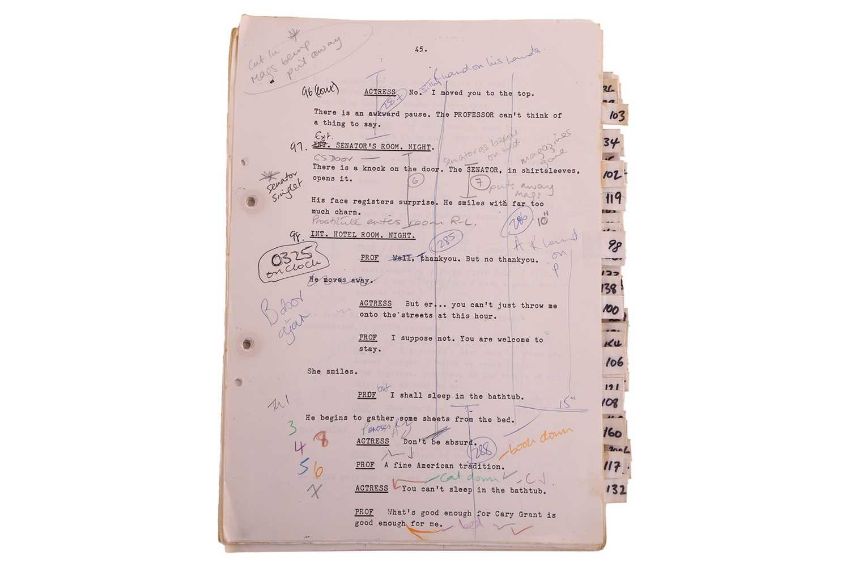 45.
Cut in *
Maps being
put away
96 (cont)
ACTRESS No. I moved you to the top.
287
There is an awkward pause. The PROFESSOR can't think of
a thing to say.
Ext.
97. INT. SENATOR'S ROOM. NIGHT.
CS Door
There is a knock on the door. The SENATOR, in shirtsleeves,
opens it.
6
7
put away
maps
* senator
singlet
His face registers surprise. He smiles with far too
much charm.
Prostitute enters room R-L.
286
10"
98. INT. HOTEL ROOM. NIGHT.
285
0325
on clock
PROF Well, thankyou. But no thankyou.
A
on
P
He moves away.
B door
ajar
ACTRESS But er... you can't just throw me
onto the streets at this hour.
PROF I suppose not. You are welcome to
stay.
She smiles.
but
PROF I shall sleep in the bathtub.
15"
He begins to gather some sheets from the bed.
3
4 8
5 6
7
ACTRESS Don't be absurd.
288
book down
PROF A fine American tradition.
ACTRESS You can't sleep in the bathtub.
PROF What's good enough for Cary Grant is
good enough for me.
bed
103
34
102
119
98
138
100
106
108
160
117
132